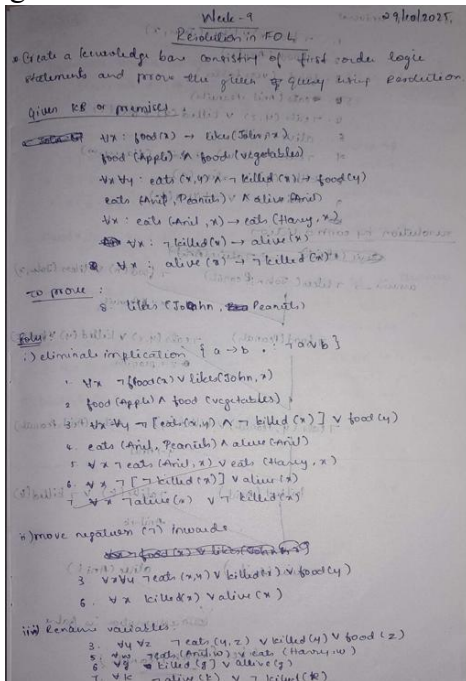 Week-9
29/10/2025.
Resolution in FOL
Create a knowledge base consisting of first order logic
statements and prove the given Query using Resolution
Given KB or premises:
∀x: food(x) → likes(John, x)
food (Apple) ∧ food (vegetables)
∀x ∀y: eats (x,y) ∧ ¬ killed (x) → food(y)
eats (Anil, Peanuts) ∧ alive (Anil)
∀x: eats (Anil, x) → eats (Harry, x)
∀x: ¬ killed(x) → alive(x)
∀x: alive (x) → ¬ killed (x)
To prove:
8 likes (John, Peanuts)
i) eliminate implication { a → b : ¬ a ∨ b }
1. ∀x ¬ food(x) ∨ likes(John, x)
2 food (Apple) ∧ food (vegetables)
3 ∀x ∀y ¬ [eats(x,y) ∧ ¬ killed (x)] ∨ food(y)
4. eats (Anil, Peanuts) ∧ alive (Anil)
5 ∀x ¬ eats (Anil, x) ∨ eats (Harry, x)
6. ∀x ¬ [¬ killed (x)] ∨ alive (x)
7 ∀x ¬ alive (x) ∨ ¬ killed (x)
ii) move negation (¬) inwards
3 ∀x ∀y ¬ eats (x,y) ∨ killed(x) ∨ food(y)
6. ∀x killed(x) ∨ alive (x)
iii) Rename variables:
3. ∀y ∀z ¬ eats (y, z) ∨ killed (y) ∨ food (z)
5. ∀w ¬ eats (Anil, w) ∨ eats (Harry, w)
6 ∀g killed (g) ∨ allive (g)
7. ∀k ¬ alive (k) ∨ ¬ killed (k)